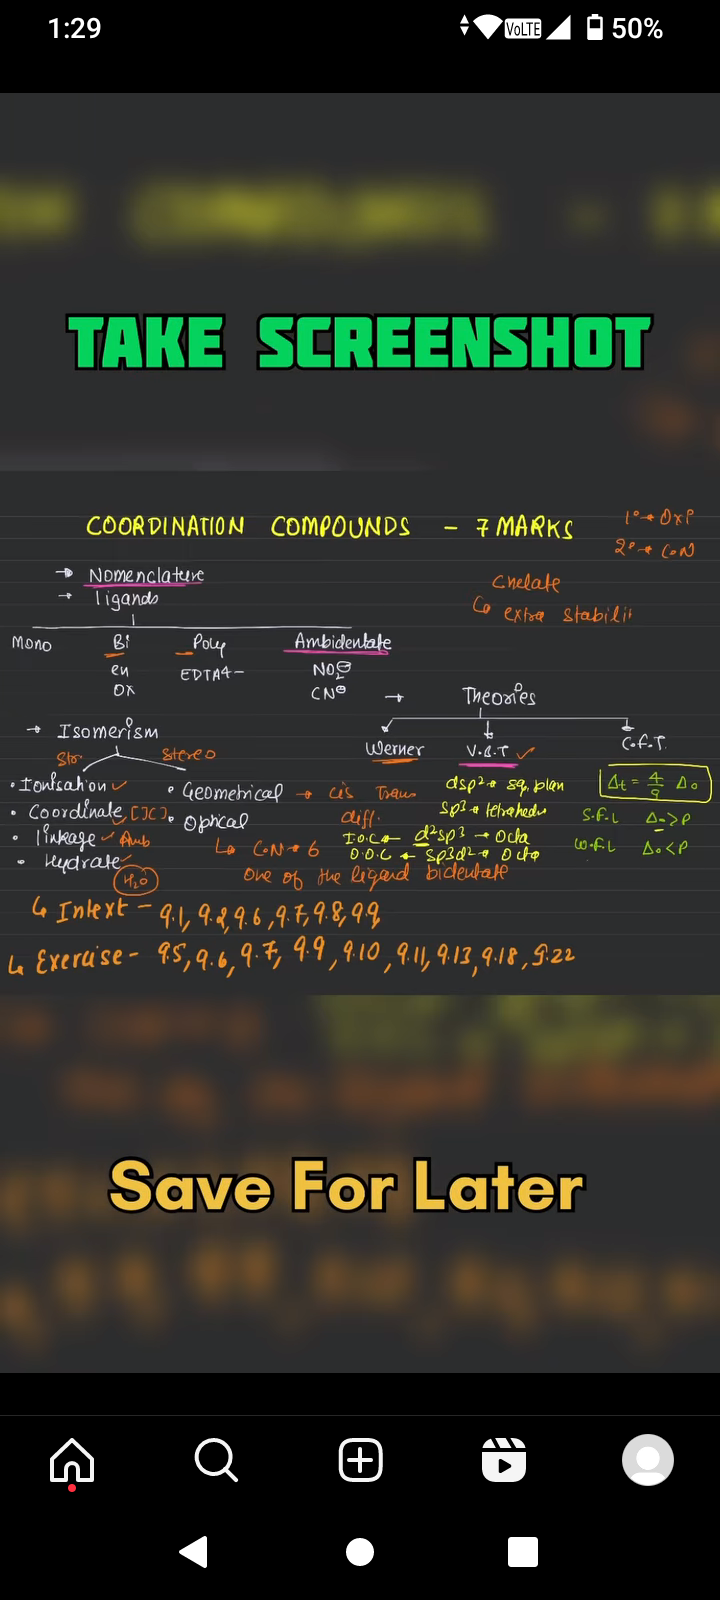 1:29
VoLTE
50%
TAKE SCREENSHOT
COORDINATION COMPOUNDS - 7 MARKS
1° → OxP
2° → CoN
→ Nomenclature
→ ligands
Chelate
↳ extra stabilit
Mono
Bi
Poly
Ambidentate
en
OX
EDTA4-
NO2⊖
CN⊖
→ Theories
→ Isomerism
Str
Stereo
Werner
V.B.T ✓
C.F.T.
• Ionisation ✓
• Coordinate [ ]C ]
• linkage ✓ Amb
• Hydrate ✓
H2O
• Geometrical → cis Trans
• Optical
diff.
↳ CoN → 6
One of the ligand bidentate
dsp2 → sq. plan
sp3 → tetrahedu
I.O.C ← d2sp3 → Octa
O.O.C ← sp3d2 → Octa
Δt = 4/9 Δo
S.F.L Δo > P
W.F.L Δo < P
↳ Intext - 9.1, 9.2, 9.6, 9.7, 9.8, 9.9
↳ Exercise - 9.5, 9.6, 9.7, 9.9, 9.10, 9.11, 9.13, 9.18, 9.22
Save For Later